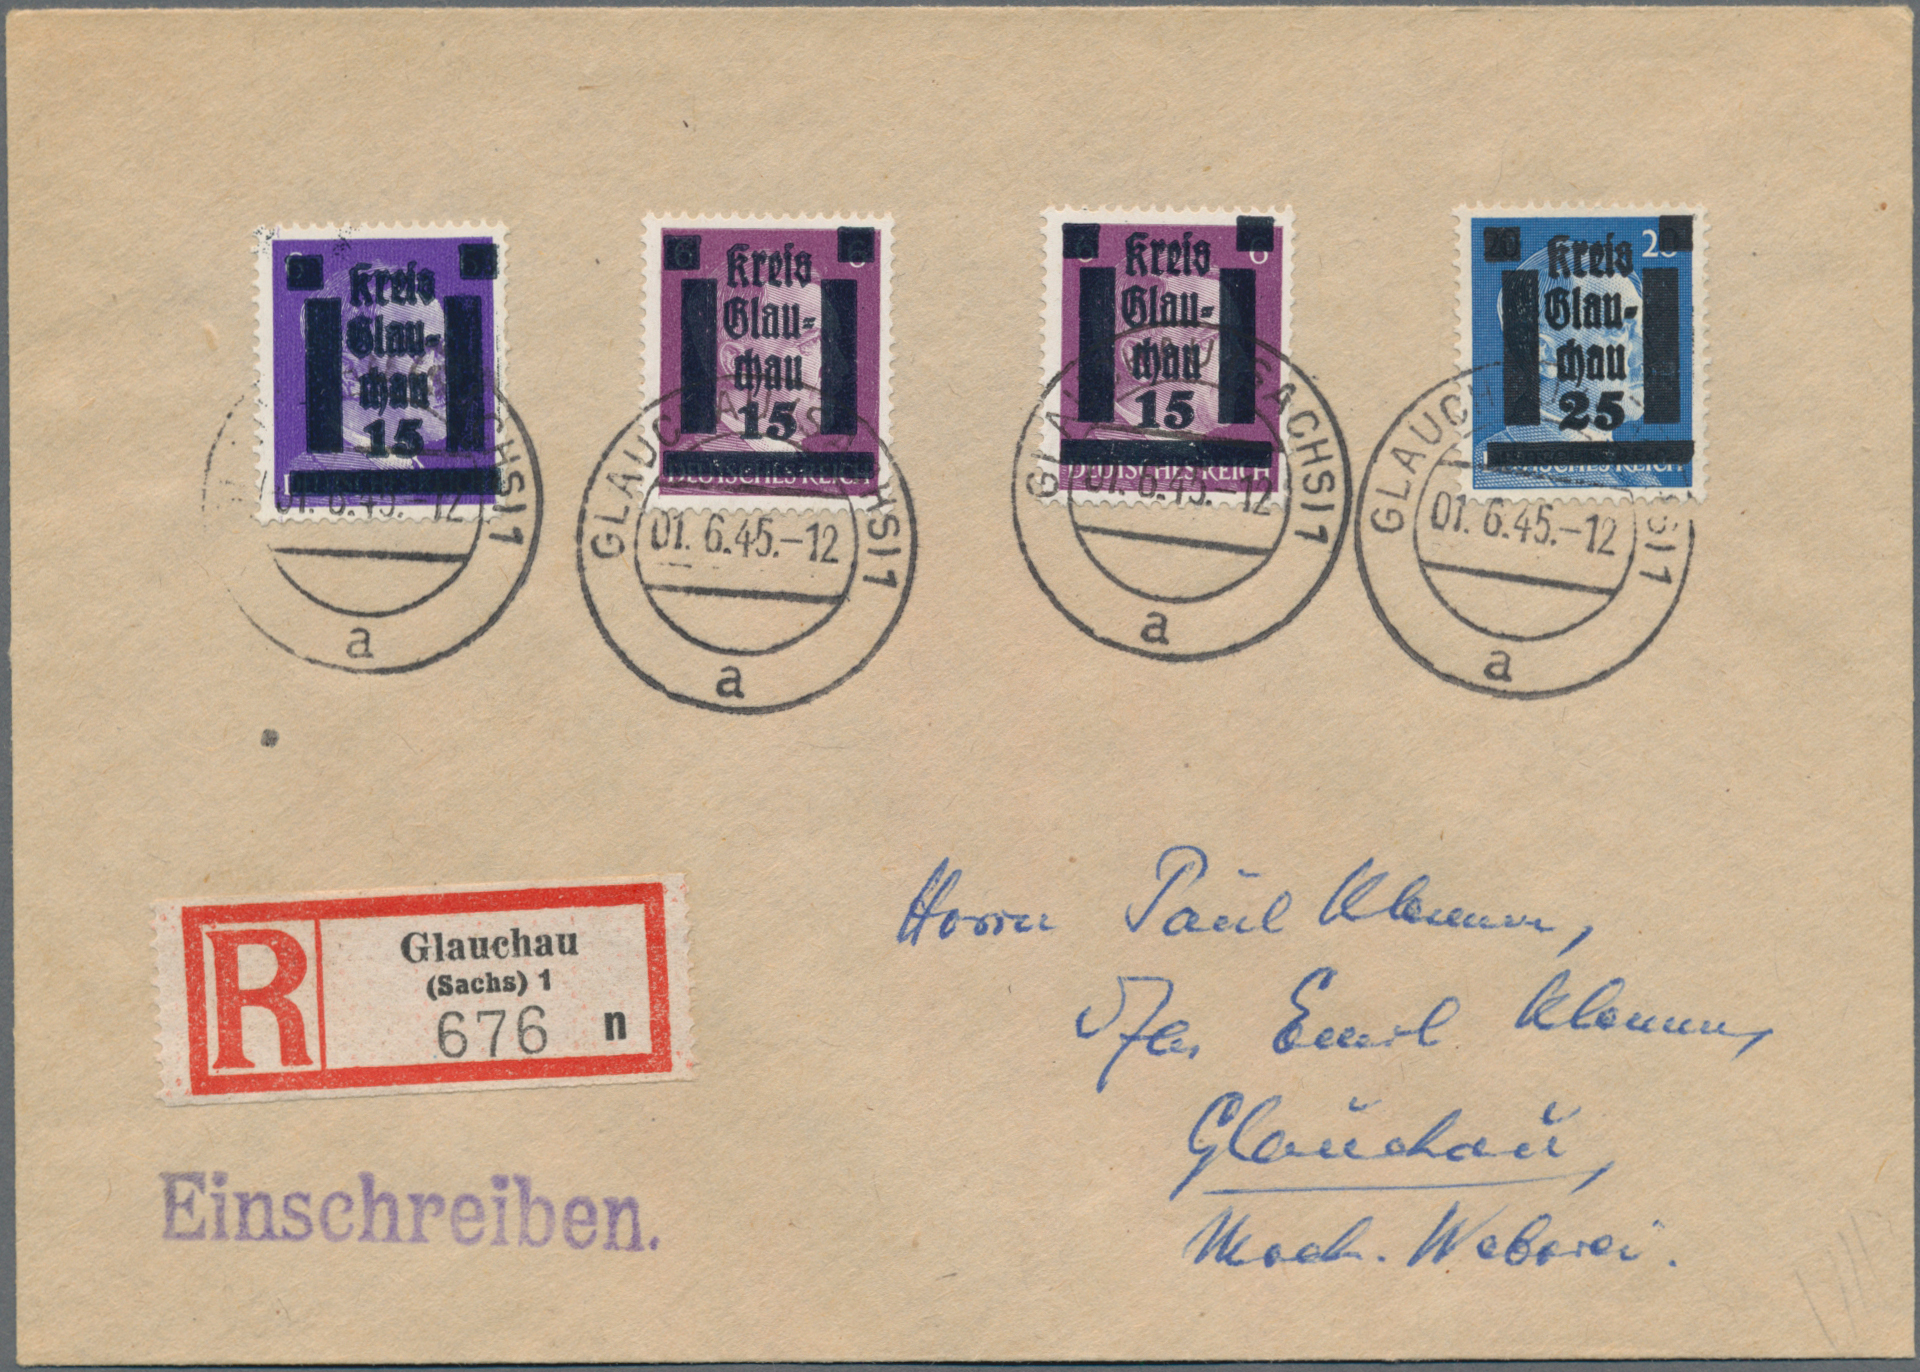 Kreis
Glau-
chau
15
6
Kreis
Glau-
chau
15
DEUTSCHES REICH
6
6
Kreis
Glau-
chau
15
DEUTSCHES REICH
20
20
Kreis
Glau-
chau
25
DEUTSCHES REICH
01.6.45.-12
a
GLAUCHAU (SACHS) 1
01.6.45.-12
a
GLAUCHAU (SACHS) 1
01.6.45.-12
a
GLAUCHAU (SACHS) 1
01.6.45.-12
a
R
Glauchau
(Sachs) 1
676 n
Einschreiben.
Herrn Paul Klemm,
Emil Klemm,
Glauchau,
Mech. Weberei.